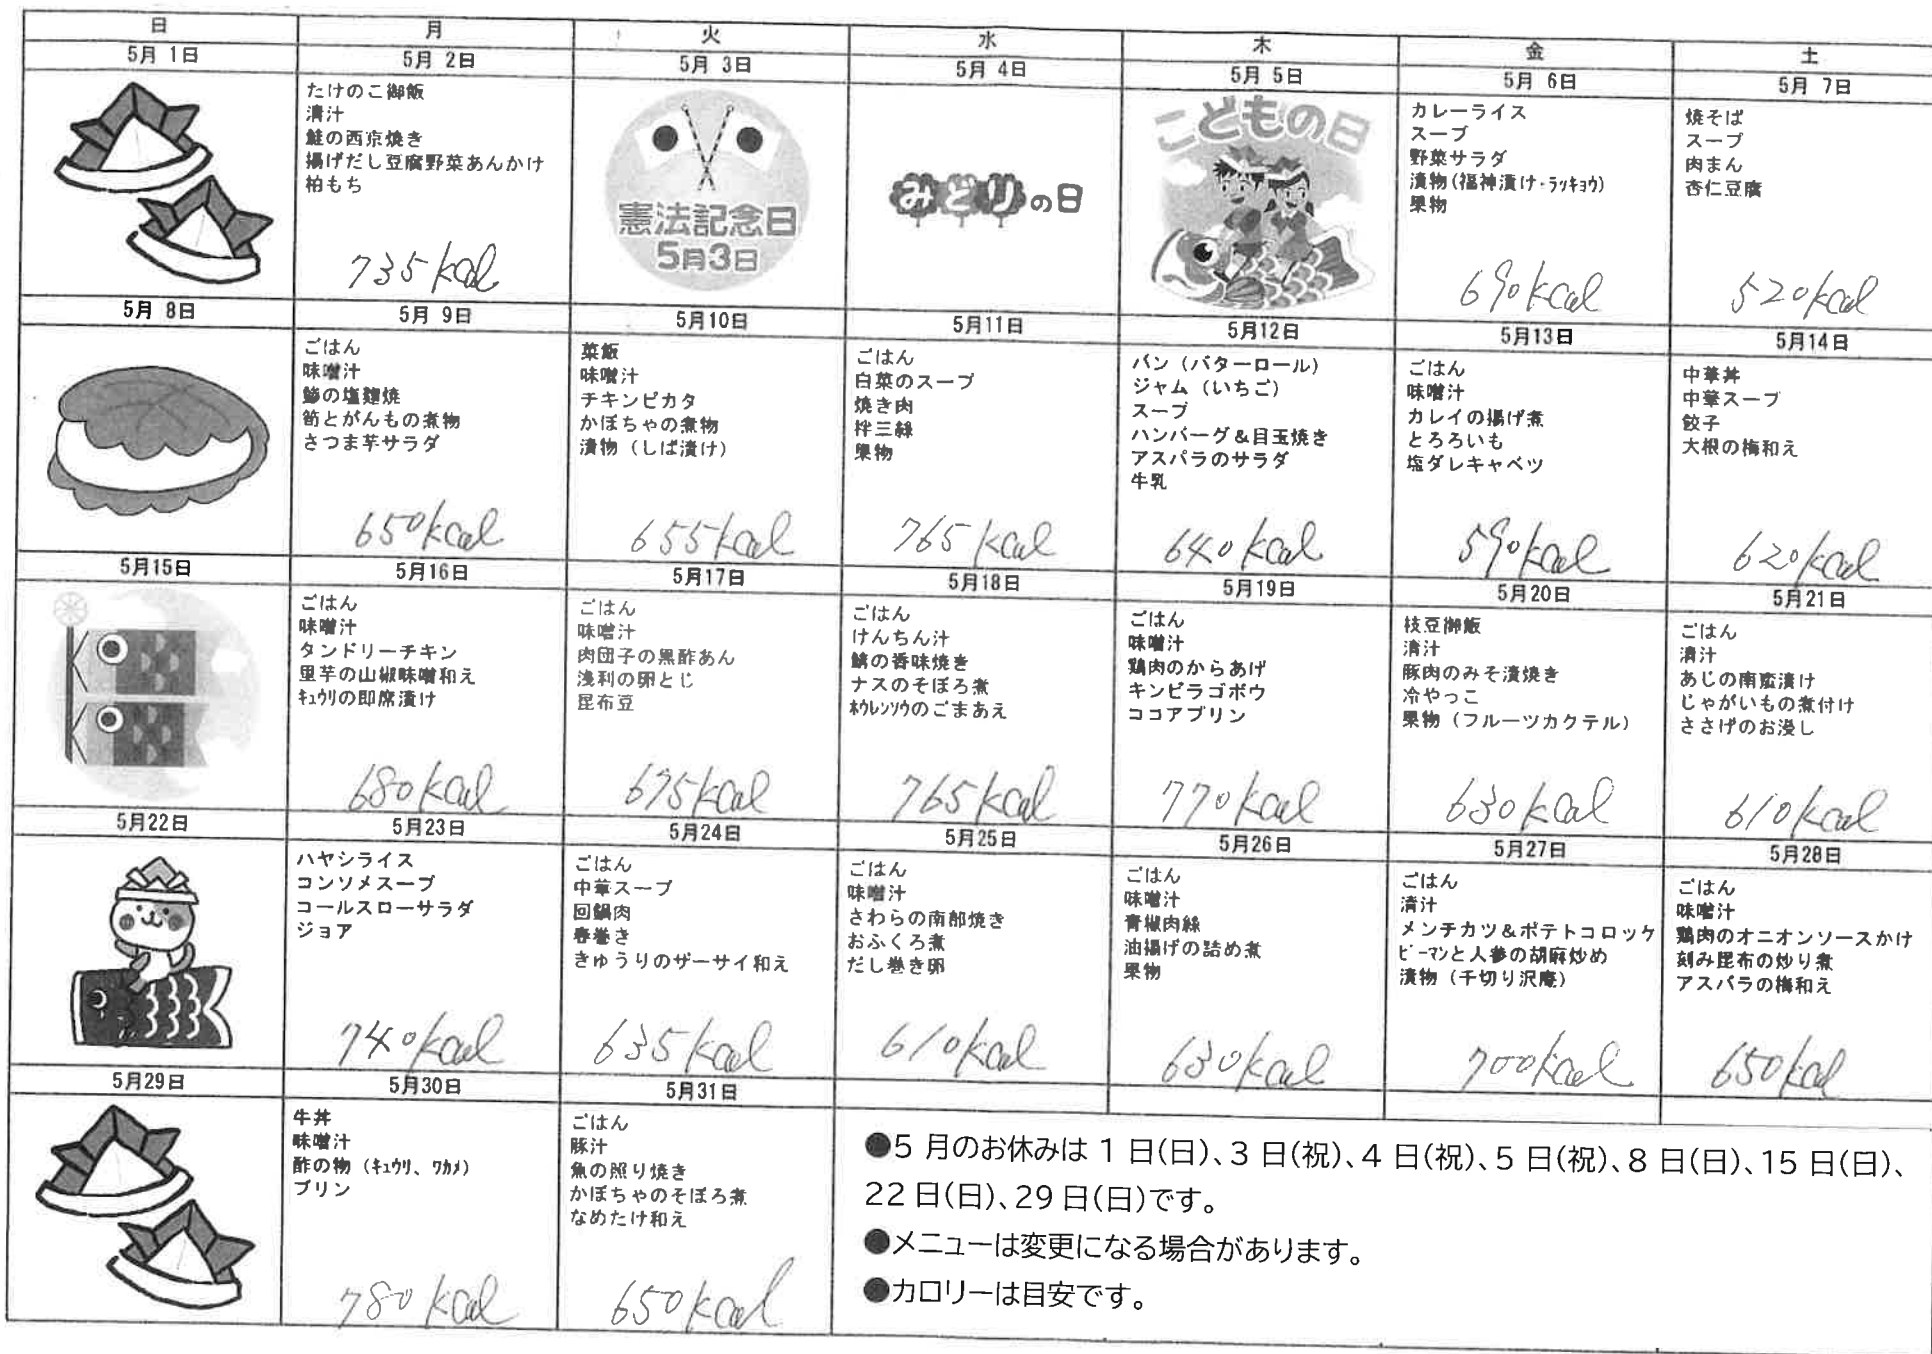 日 月 火 水 木 金 土
5月 1日 5月 2日 5月 3日 5月 4日 5月 5日 5月 6日 5月 7日
たけのこ御飯
清汁
鮭の西京焼き
揚げだし豆腐野菜あんかけ
柏もち
735kcal
憲法記念日
5月3日
みどりの日
こどもの日
カレーライス
スープ
野菜サラダ
漬物(福神漬け・ラッキョウ)
果物
690kcal
焼そば
スープ
肉まん
杏仁豆腐
520kcal
5月 8日 5月 9日 5月10日 5月11日 5月12日 5月13日 5月14日
ごはん
味噌汁
鰺の塩麹焼
筍とがんもの煮物
さつま芋サラダ
650kcal
菜飯
味噌汁
チキンピカタ
かぼちゃの煮物
漬物（しば漬け）
655kcal
ごはん
白菜のスープ
焼き肉
拌三絲
果物
765kcal
パン（バターロール）
ジャム（いちご）
スープ
ハンバーグ＆目玉焼き
アスパラのサラダ
牛乳
640kcal
ごはん
味噌汁
カレイの揚げ煮
とろろいも
塩ダレキャベツ
590kcal
中華丼
中華スープ
餃子
大根の梅和え
620kcal
5月15日 5月16日 5月17日 5月18日 5月19日 5月20日 5月21日
ごはん
味噌汁
タンドリーチキン
里芋の山椒味噌和え
ｷｭｳﾘの即席漬け
680kcal
ごはん
味噌汁
肉団子の黒酢あん
浅利の卵とじ
昆布豆
675kcal
ごはん
けんちん汁
の香味焼き
ナスのそぼろ煮
ﾎｳﾚﾝｿｳのごまあえ
765kcal
ごはん
味噌汁
鶏肉のからあげ
キンピラゴボウ
ココアプリン
770kcal
枝豆御飯
清汁
豚肉のみそ漬焼き
冷やっこ
果物（フルーツカクテル）
630kcal
ごはん
清汁
あじの南蛮漬け
じゃがいもの煮付け
ささげのお浸し
610kcal
5月22日 5月23日 5月24日 5月25日 5月26日 5月27日 5月28日
ハヤシライス
コンソメスープ
コールスローサラダ
ジョア
740kcal
ごはん
中華スープ
回鍋肉
春巻き
きゅうりのザーサイ和え
635kcal
ごはん
味噌汁
さわらの南部焼き
おふくろ煮
だし巻き卵
610kcal
ごはん
味噌汁
青椒肉絲
油揚げの詰め煮
果物
630kcal
ごはん
清汁
メンチカツ＆ポテトコロッケ
ﾋﾟｰﾏﾝと人参の胡麻炒め
漬物（千切り沢庵）
700kcal
ごはん
味噌汁
鶏肉のオニオンソースかけ
刻み昆布の炒り煮
アスパラの梅和え
650kcal
5月29日 5月30日 5月31日
牛丼
味噌汁
酢の物（ｷｭｳﾘ、ﾜｶﾒ）
プリン
780kcal
ごはん
豚汁
魚の照り焼き
かぼちゃのそぼろ煮
なめたけ和え
650kcal
●5 月のお休みは 1 日(日)、3 日(祝)、4 日(祝)、5 日(祝)、8 日(日)、15 日(日)、
22 日(日)、29 日(日)です。
●メニューは変更になる場合があります。
●カロリーは目安です。